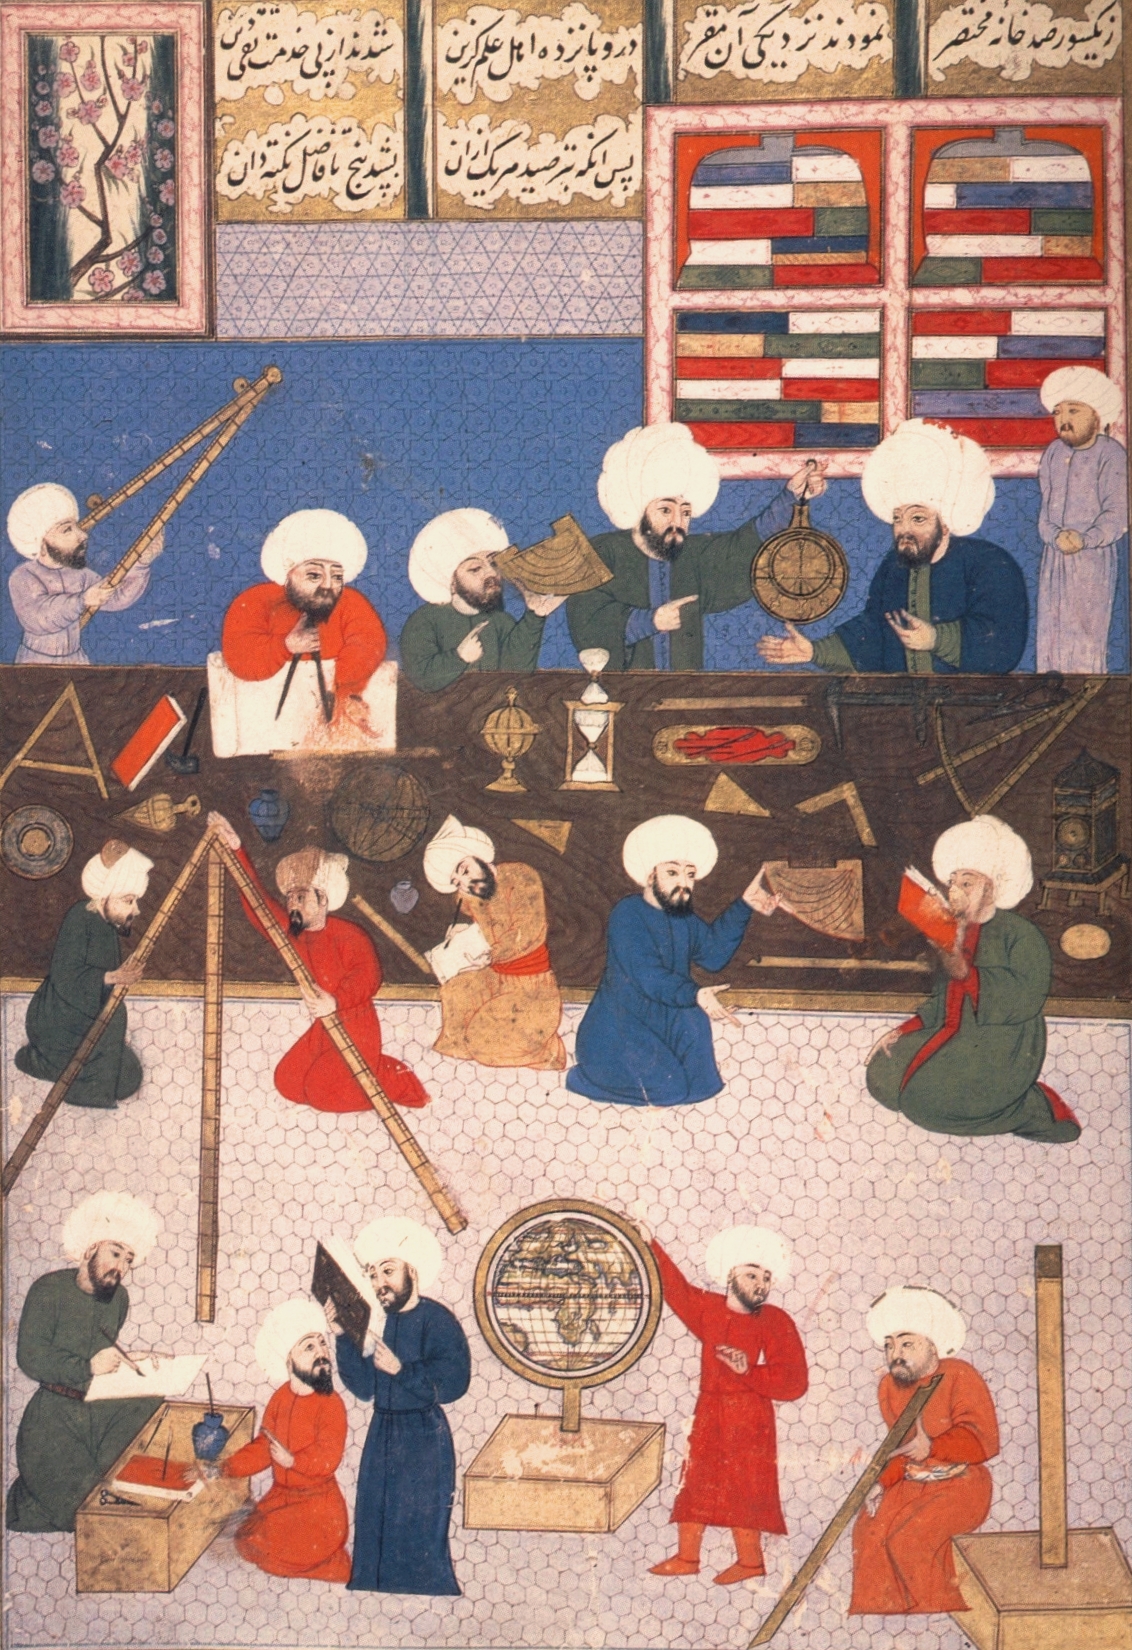 ز یکسو رصد خانه مختصر نمودند نزدیکی آن مقر درو پانزده اهل علم گزین شدند از پی خدمت تقی دین
پس انکه بترصید هر یک ازان بشد پنج با فاضل نکته دان